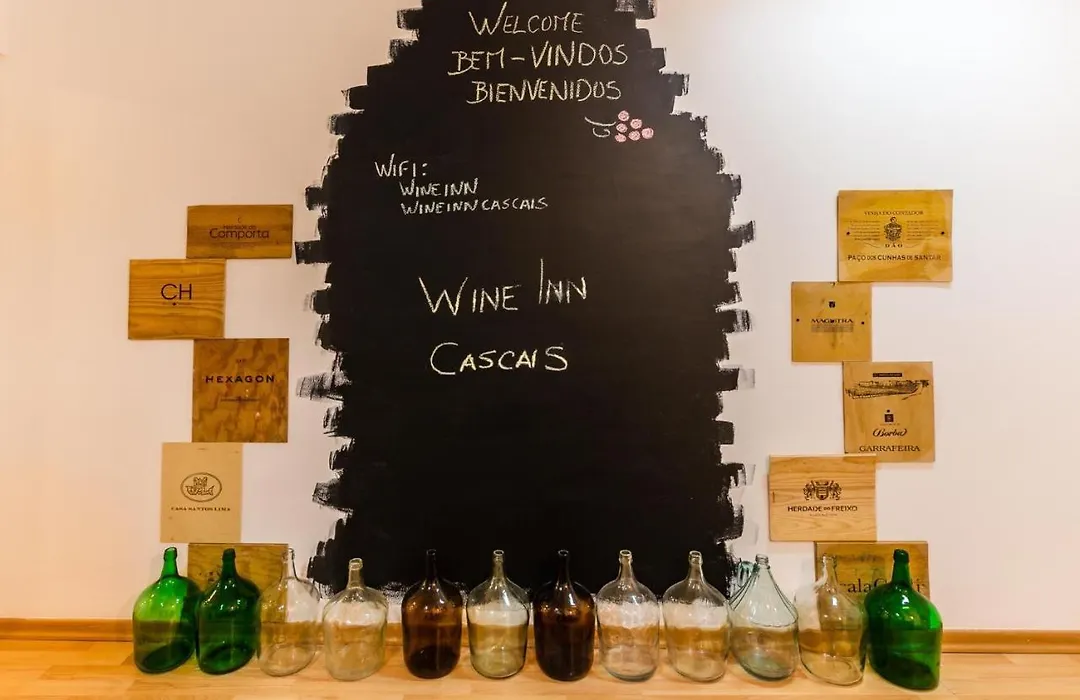 WELCOME
BEM-VINDOS
BIENVENIDOS
WIFI:
WINE INN
WINEINNCASCAIS
WINE INN
CASCAIS
Comporta
CH
HEXAGON
CASA SANTOS LIMA
VINHA DO CONTADOR
DÃO
PAÇO DOS CUNHAS DE SANTAR
Borba
GARRAFEIRA
HERDADE DO FREIXO